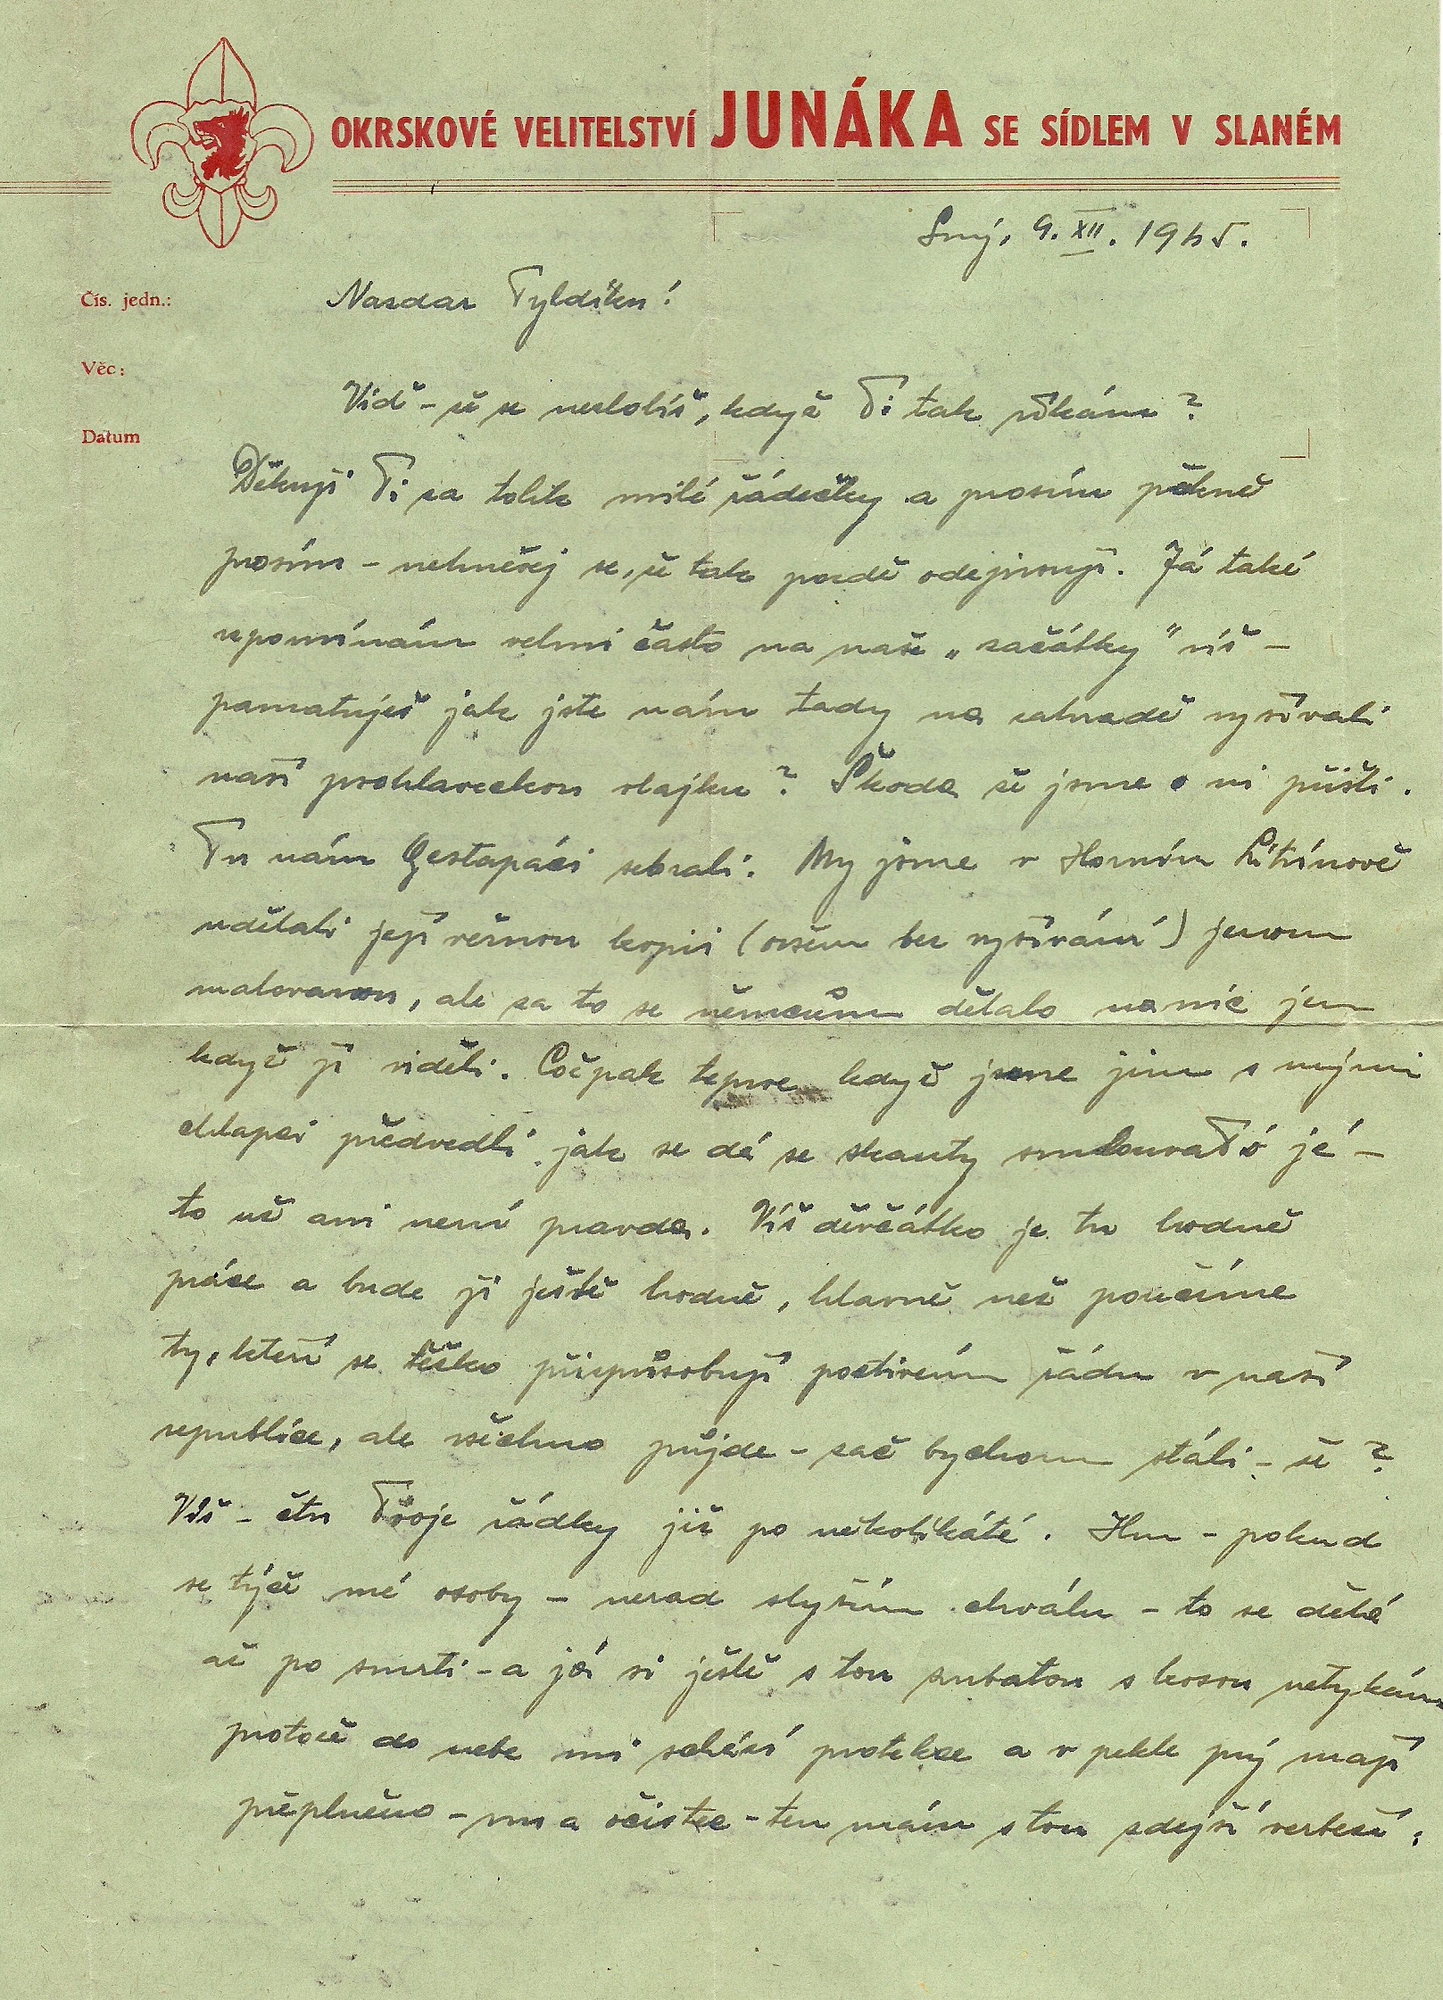 OKRSKOVÉ VELITELSTVÍ JUNÁKA SE SÍDLEM V SLANÉM
9. XII. 1945.
Čís. jedn.:
Nazdar Tyldíku!
Věc:
Viď - že se nezlobíš, když Ti tak říkám?
Datum
Děkuji Ti za tolik milé řádečky a prosím pěkně
prosím - nehněvej se, že tak pozdě odepisuji. Já také
vzpomínám velmi často na naše „začátky" víš -
pamatuješ jak jste nám tady na zahradě vyšívali
naší prohlaveckou vlajku? Škoda že jsme o ni přišli.
Tu nám Gestapáci sebrali. My jsme v Horním Litvínově
udělali její věrnou kopii (ovšem bez vyšívání) jenom
malovanou, ale za to se němcům dělalo nanic jen
když ji viděli. Cožpak teprve když jsme jim s mými
chlapci předvedli jak se dá se skauty smlouvat ó jé -
to už ani není pravda. Víš děvčátko je tu hodně
práce a bude jí ještě hodně, hlavně než poučíme
ty, kteří se těžko přizpůsobují poctivému řádu v naší
republice, ale všechno půjde - zač bychom stáli - že?
Víš - čtu Tvoje řádky již po několikáté. Hm - pokud
se týče mé osoby - nerad slyším chválu - to se dělá
až po smrti - a já si ještě s tou zubatou s kosou netykám
protože do nebe mi schází protekce a v pekle prý mají
přeplněno - nu a očistec - ten mám s tou zdejší verbeží.